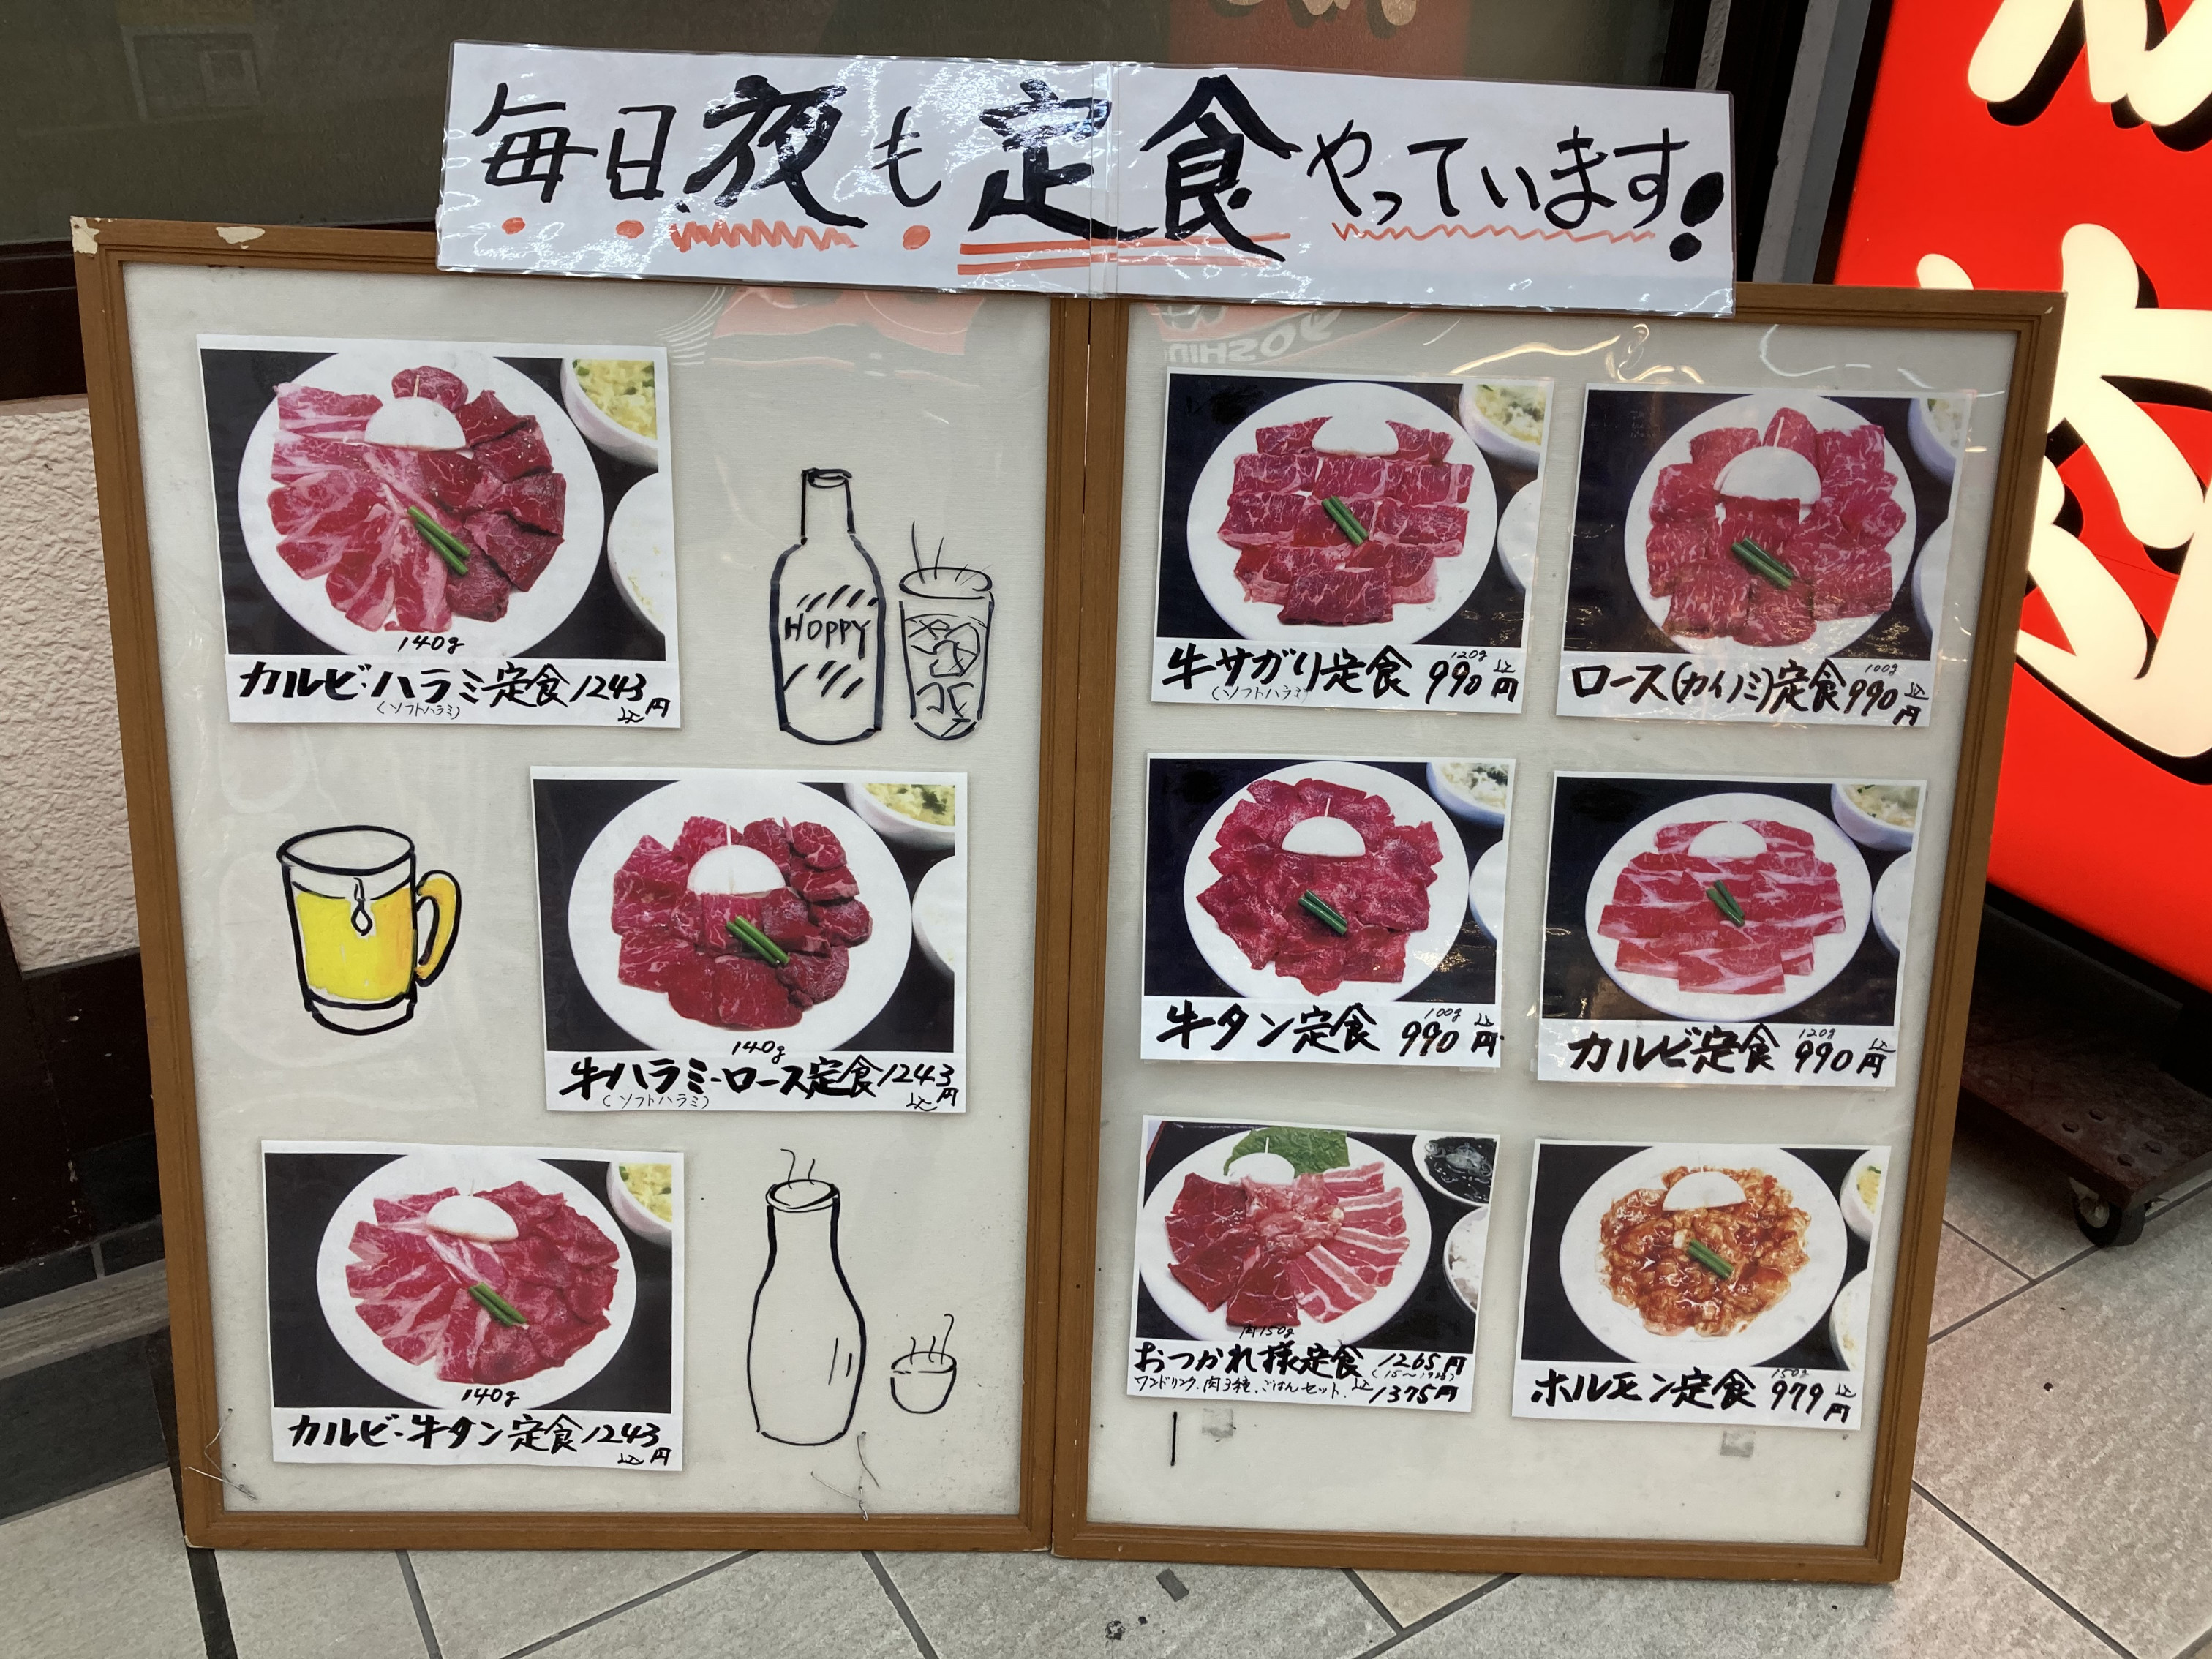 毎日夜も定食やっています!
140g
カルビ・ハラミ定食1243円
(ソフトハラミ)
込
HOPPY
140g
牛ハラミ・ロース定食1243円
(ソフトハラミ)
込
140g
カルビ・牛タン定食1243円
込
牛サガリ定食 120g 990円
(ソフトハラミ)
込
ロース(カイノミ)定食 100g 990円
込
牛タン定食 100g 990円
込
カルビ定食 120g 990円
込
肉150g
おつかれ様定食 1265円
ワンドリンク、肉3種、ごはんセット。
込 1375円
ホルモン定食 150g 979円
込